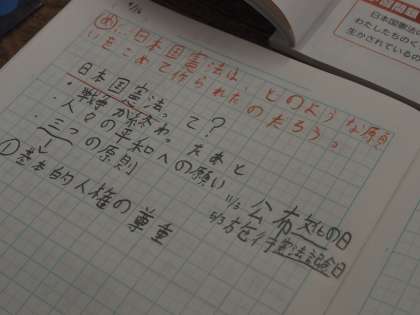 め…日本国憲法は、どのような願
いをこめて作られたのだろう。
日本国憲法って?
・戦争が終わったあと
人々の平和への願い
・三つの原則
①基本的人権の尊重
11/3 公布 文化の日
5/3 施行 憲法記念日
日本国憲法の
わたしたちのく
生かされているの